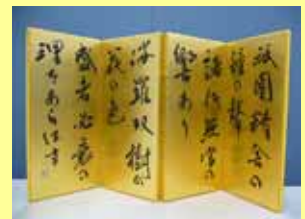 祇園精舎の
鐘の聲
諸行無常の
響あり
沙羅双樹の
花の色
盛者必衰の
理をあらはす